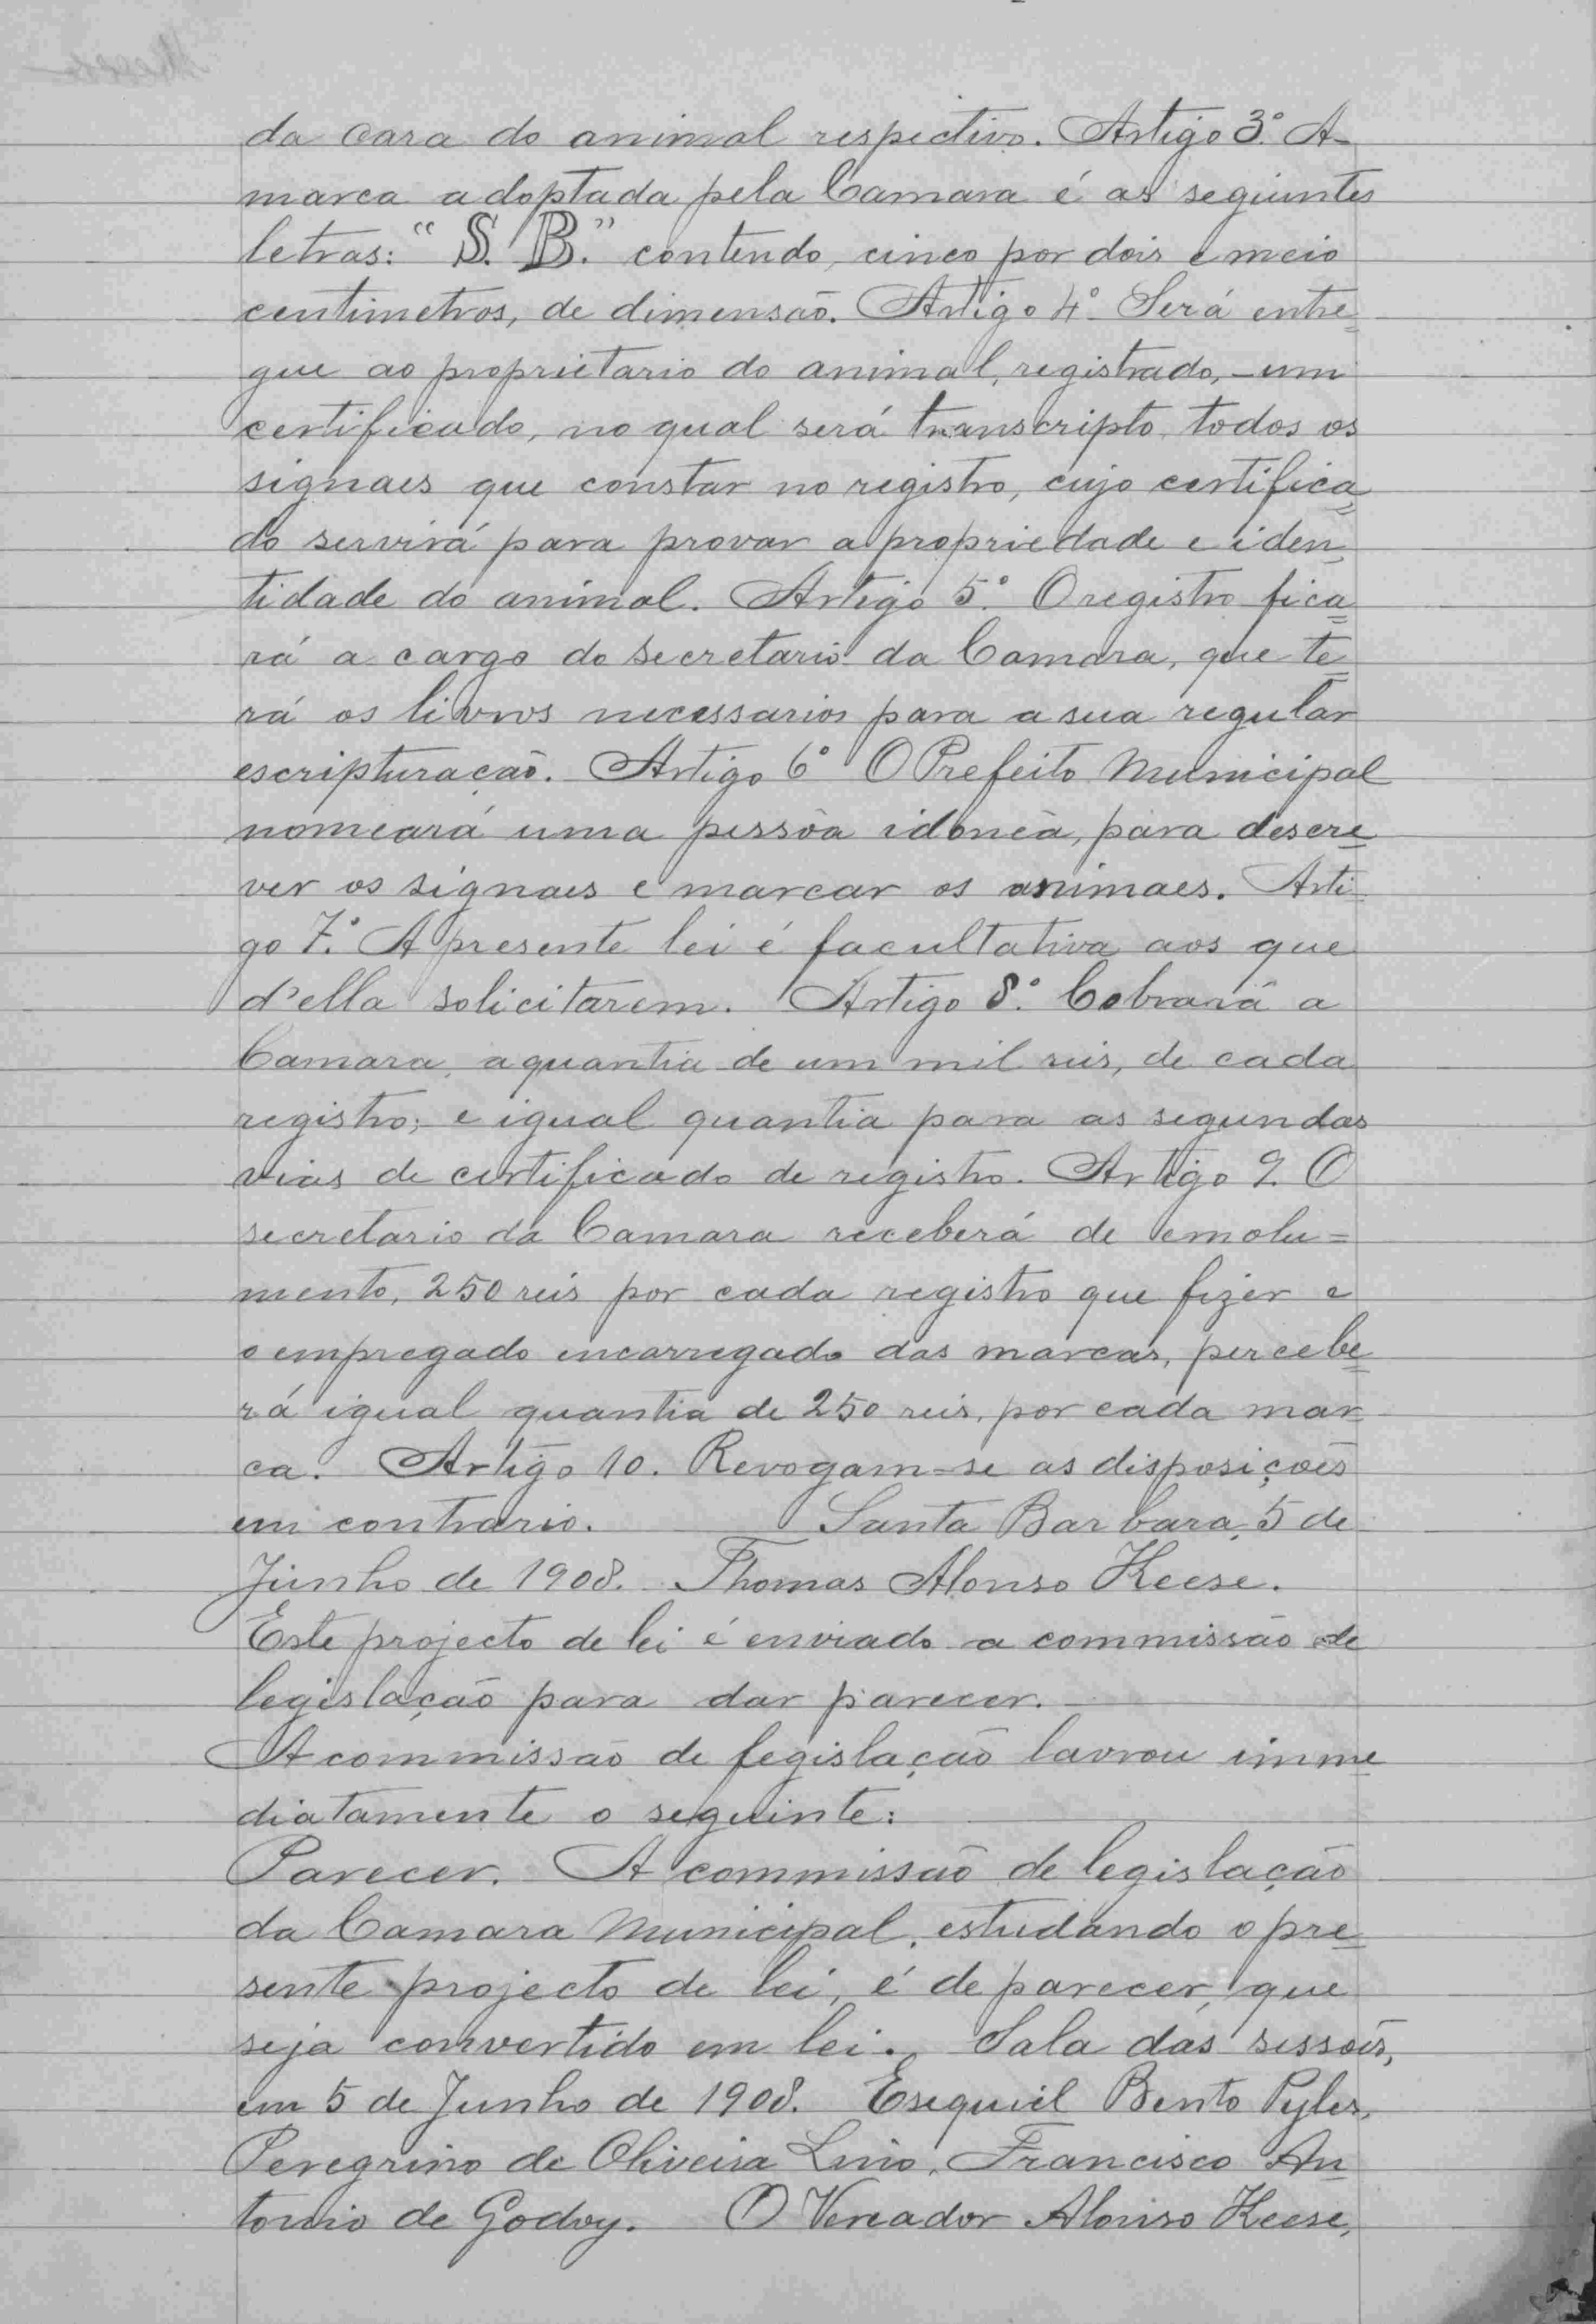 da cara do animal respectivo. Artigo 3º. A
marca adoptada pela Camara é as seguintes
letras: "S. B." contendo, cinco por dois e meio
centimetros, de dimensaõ. Artigo 4º. Será entre=
gue ao proprietario do animal, registrado, um
certificado, no qual será transcripto todos os
signaes que constar no registro, cujo certifica=
do servirá para provar a propriedade e iden=
tidade do animal. Artigo 5º. O registro fica=
rá a cargo do Secretario da Camara, que te=
rá os livros necessarios para a sua regular
escripturaçaõ. Artigo 6º O Prefeito Municipal
nomeará uma pessôa idonea, para descre=
ver os signaes e marcar os animaes. Arti=
go 7º. A presente lei é facultativa aos que
d'ella solicitarem. Artigo 8º. Cobrará a
Camara, a quantia de um mil reis, de cada
registro; e igual quantia para as segundas
vias de certificado de registro. Artigo 9. O
secretario da Camara receberá de emolu=
mento, 250 reis por cada registro que fizer e
o empregado encarregado das marcas, percebe=
rá igual quantia de 250 reis, por cada mar=
ca. Artigo 10. Revogam-se as disposiçoẽs
em contrario. Santa Barbara, 5 de
Junho de 1908. Thomas Alonso Keese.
Este projecto de lei é enviado a commissão de
legislação para dar parecer.
A commissaõ de legislação lavrou imme=
diatamente o seguinte:
Parecer. A commissaõ de legislação
da Camara Municipal, estudando o pre=
sente projecto de lei, é de parecer, que
seja convertido em lei. Sala das sessoẽs,
em 5 de Junho de 1908. Esequiel Bento Pyles,
Peregrino de Oliveira Lino, Francisco An=
tonio de Godoy. O Vereador Alonso Keese,